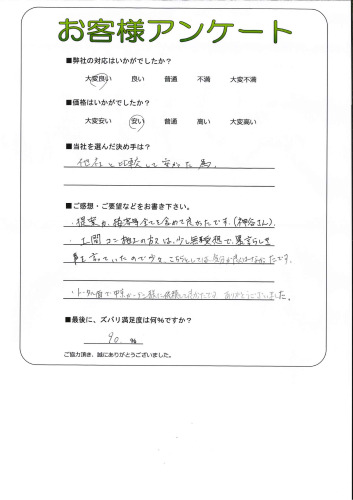 お客様アンケート
■弊社の対応はいかがでしたか？
大変良い 良い 普通 不満 大変不満
■価格はいかがでしたか？
大変安い 安い 普通 高い 大変高い
■当社を選んだ決め手は？
他社と比較して安かった為
■ご感想・ご要望などをお書き下さい。
・提案力、接客等全てを含めて良かったです。(神谷さん)
・土間コン
の方は、少し無愛想で、
事を言っていたので少々こちらとしては、気分が良くはなかったです。
・トータル面で
様に依頼して良かったです ありがとうございました。
■最後に、ズバリ満足度は何％ですか？
90 ％
ご協力頂き、誠にありがとうございました。